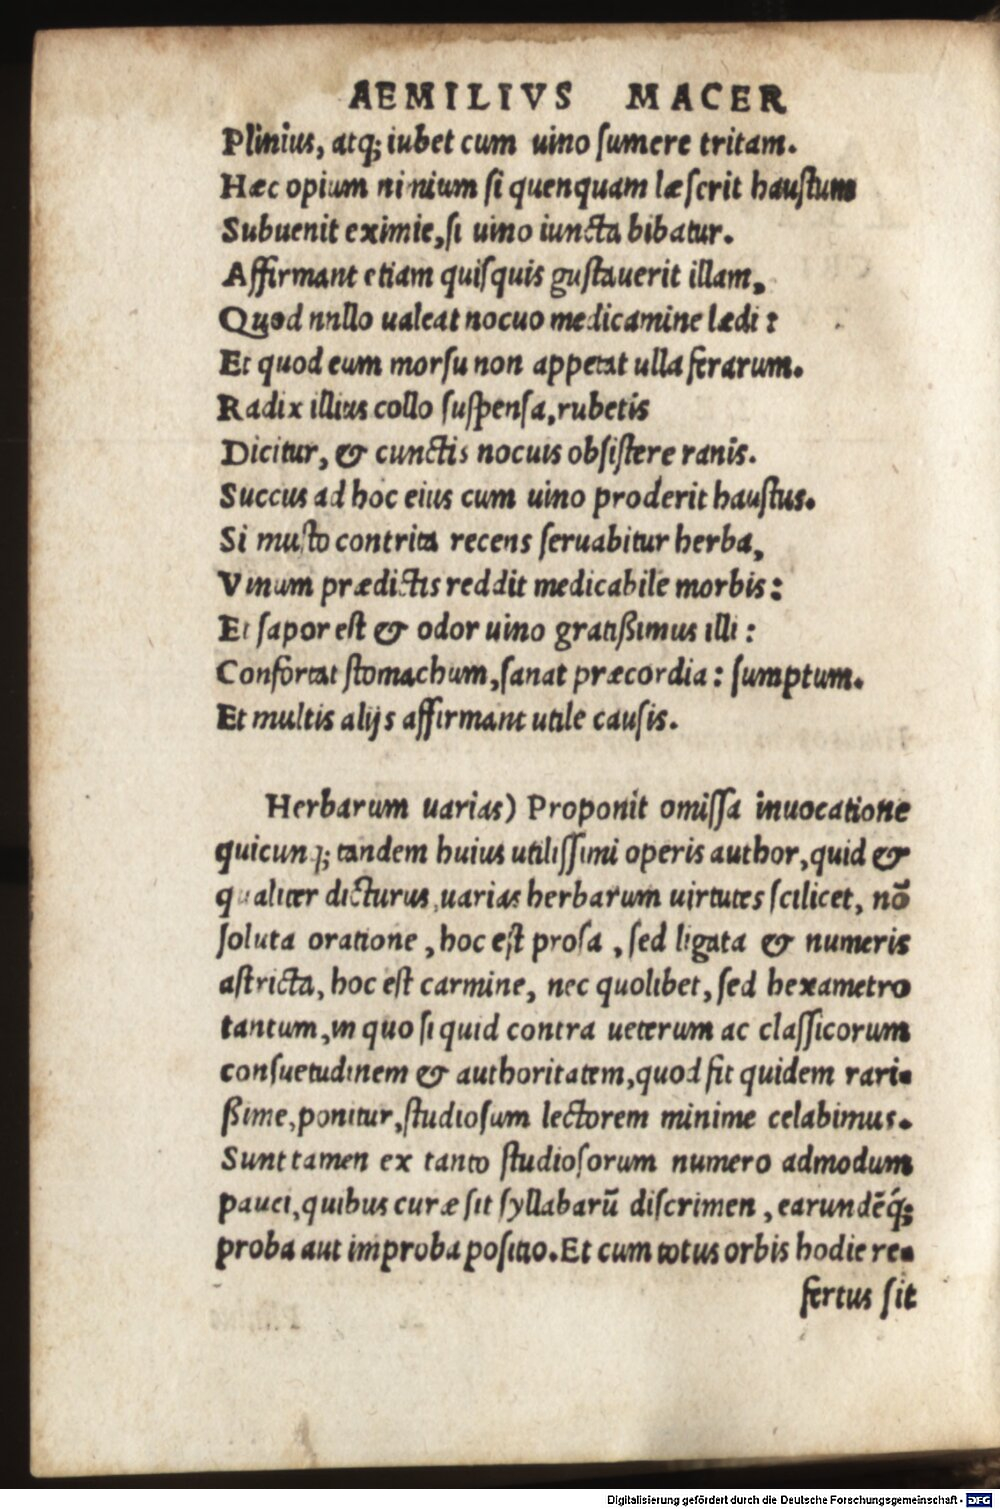 AEMILIVS MACER
Plinius, atq; iubet cum uino ſumere tritam.
Hæc opium ninium ſi quenquam læſerit hauſtum
Subuenit eximie, ſi uino iuncta bibatur.
Affirmant etiam quiſquis guſtauerit illam,
Quod nnllo ualeat nocuo medicamine lædi:
Et quod eum morſu non appetat ulla ferarum.
Radix illius collo ſuſpenſa, rubetis
Dicitur, & cunctis nocuis obſiſtere ranis.
Succus ad hoc eius cum uino proderit hauſtus.
Si muſto contrita recens ſeruabitur herba,
Vinum prædictis reddit medicabile morbis:
Et ſapor eſt & odor uino gratißimus illi:
Confortat ſtomachum, ſanat præcordia: ſumptum.
Et multis alijs affirmant utile cauſis.
Herbarum uarias) Proponit omiſſa inuocatione
quicunq; tandem huius utiliſſimi operis author, quid &
qualiter dicturus, uarias herbarum uirtutes ſcilicet, nõ
ſoluta oratione, hoc eſt proſa, ſed ligata & numeris
aſtricta, hoc eſt carmine, nec quolibet, ſed hexametro
tantum, in quo ſi quid contra ueterum ac claſſicorum
conſuetudinem & authoritatem, quod fit quidem rari-
ßime, ponitur, ſtudioſum lectorem minime celabimus.
Sunt tamen ex tanto ſtudioſorum numero admodum
pauci, quibus curæ ſit ſyllabarũ diſcrimen, earundẽq́;
proba aut improba poſitio. Et cum totus orbis hodie re-
fertus ſit
Digitalisierung gefördert durch die Deutsche Forschungsgemeinschaft - DFG